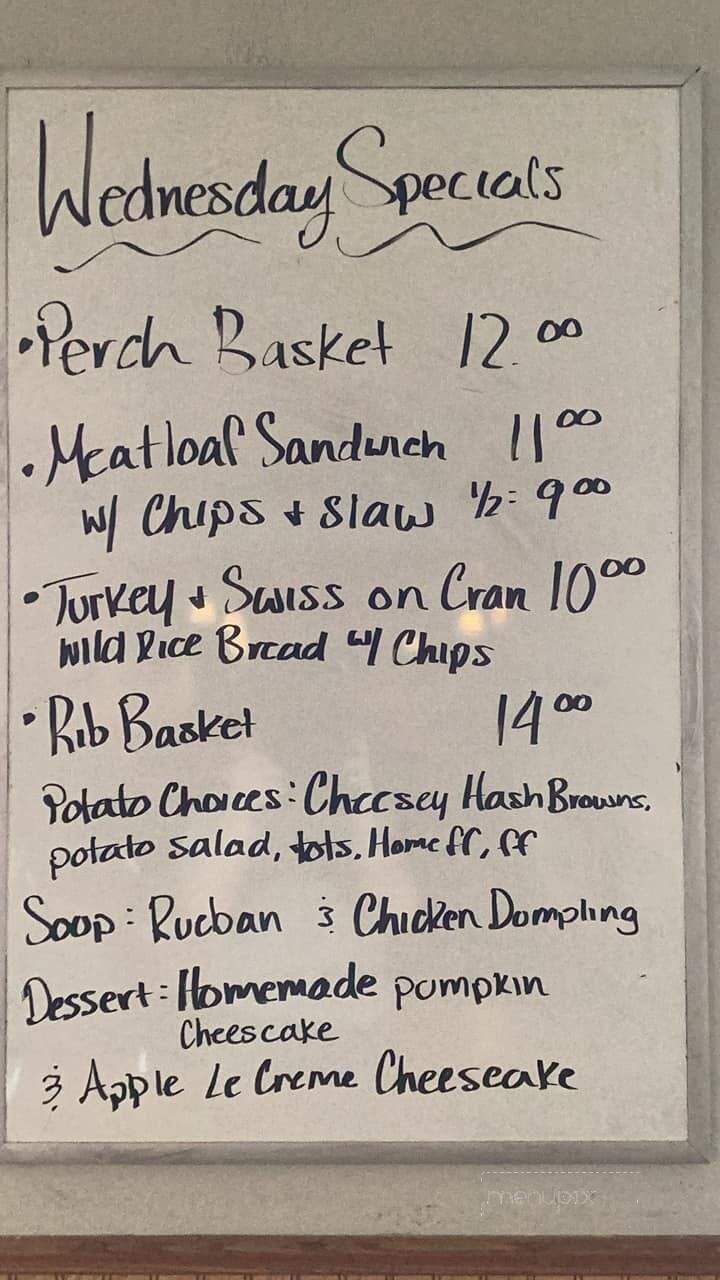 Wednesday Specials
• Perch Basket 12.00
• Meatloaf Sandwich 11 00
w/ Chips + Slaw 1/2: 9 00
• Turkey + Swiss on Cran 10 00
Wild Rice Bread w/ Chips
• Rib Basket 14 00
Potato Choices: Cheesey Hash Browns,
potato salad, tots, Home ff, ff
Soup: Rueban & Chicken Dumpling
Dessert: Homemade pumpkin
Cheesecake
& Apple Le Creme Cheesecake
menupix